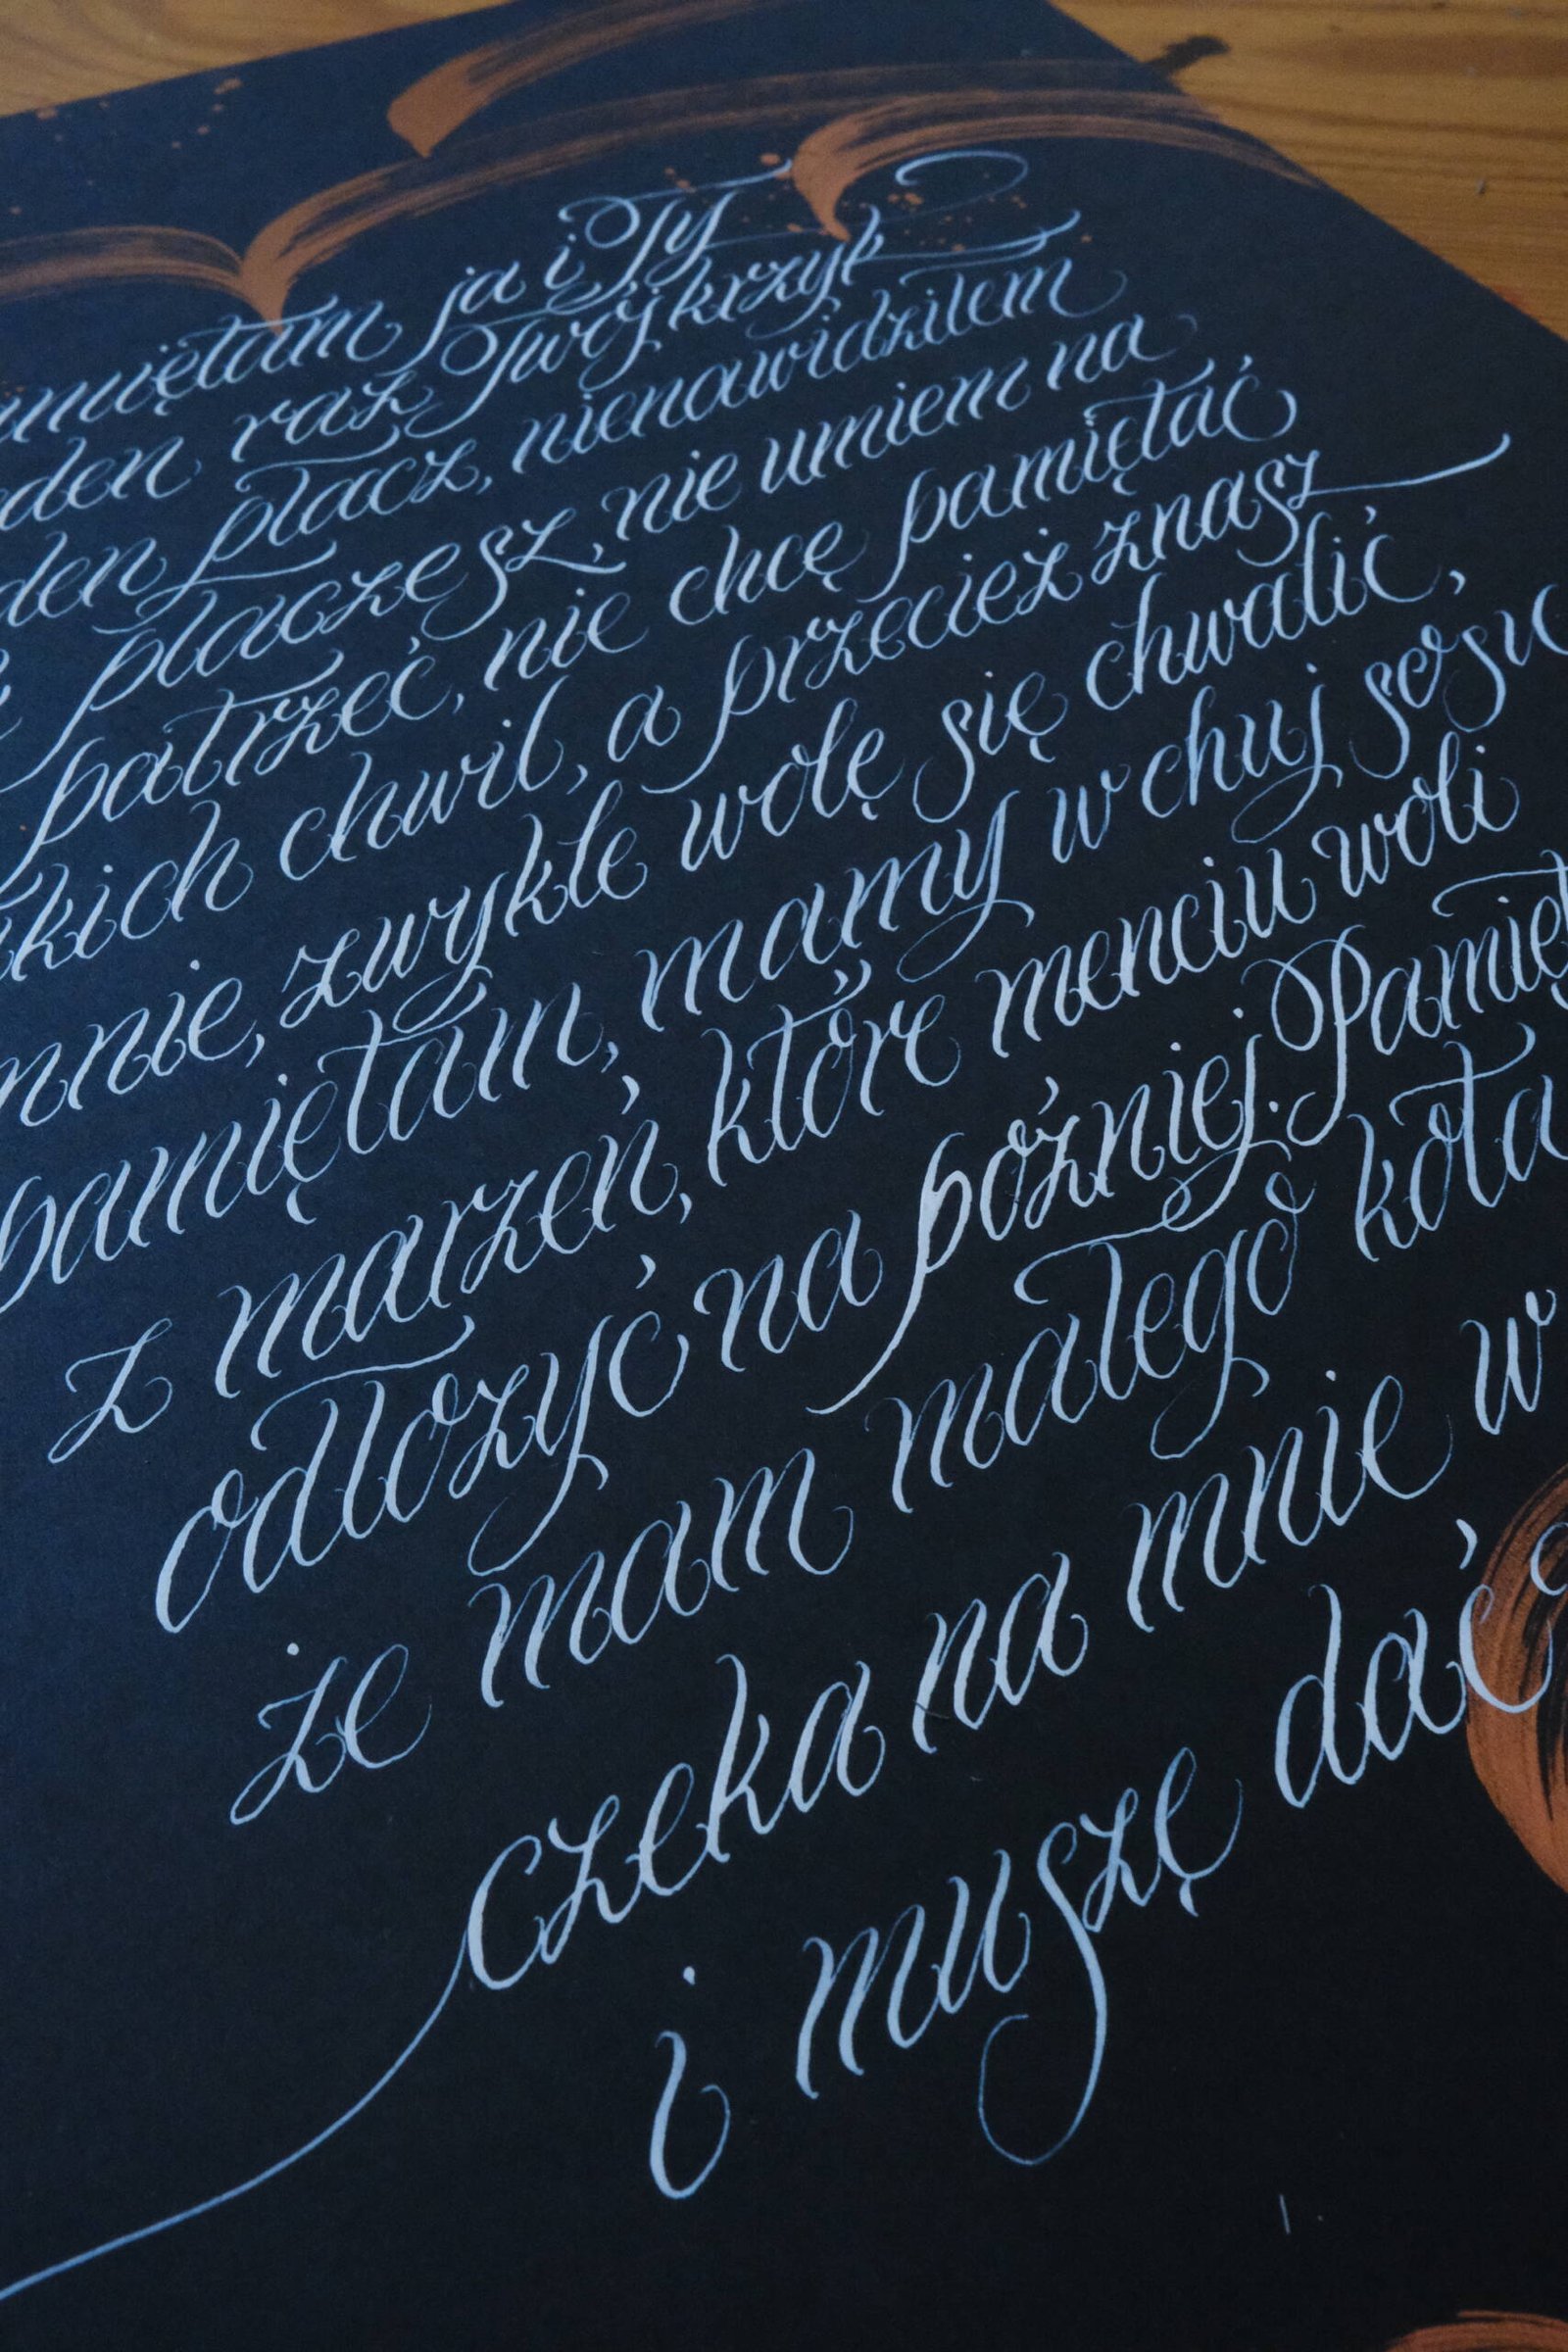 amiętam ja i Ty
den raz Twój krzyk
den płacz, nienawidziłem
płaczesz, nie umiem na
patrzeć, nie chcę pamiętać
kich chwil, a przecież znasz
mnie, zwykle wolę się chwalić,
pamiętam, mamy w chuj sosu
z marzeń, które menciu woli
odłozyć na później. Pamięt
że mam małego kota
czeka na mnie w
i muszę dać